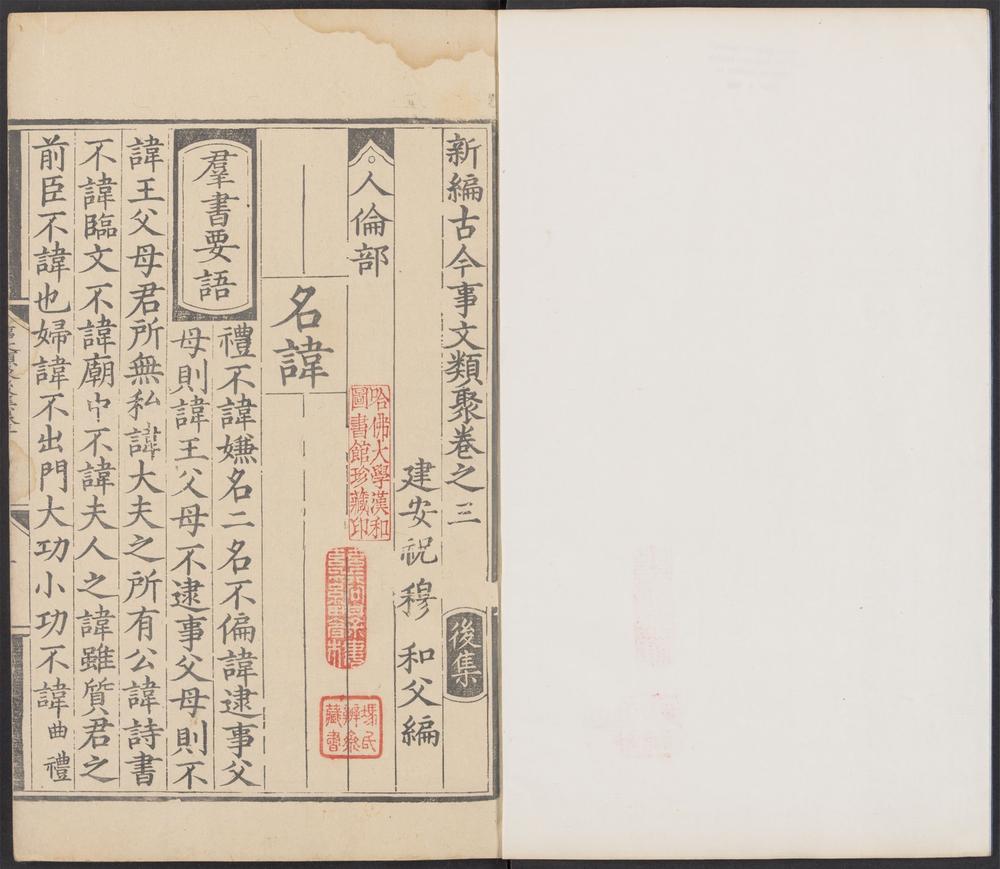 新編古今事文類聚卷之三
後集
建安祝穆 和父編
人倫部
名諱
羣書要語
禮不諱嫌名二名不偏諱逮事父
母則諱王父母不逮事父母則不
諱王父母君所無私諱大夫之所有公諱詩書
不諱臨文不諱廟中不諱夫人之諱雖質君之
前臣不諱也婦諱不出門大功小功不諱曲禮
哈佛大學漢和
圖書館珍藏印